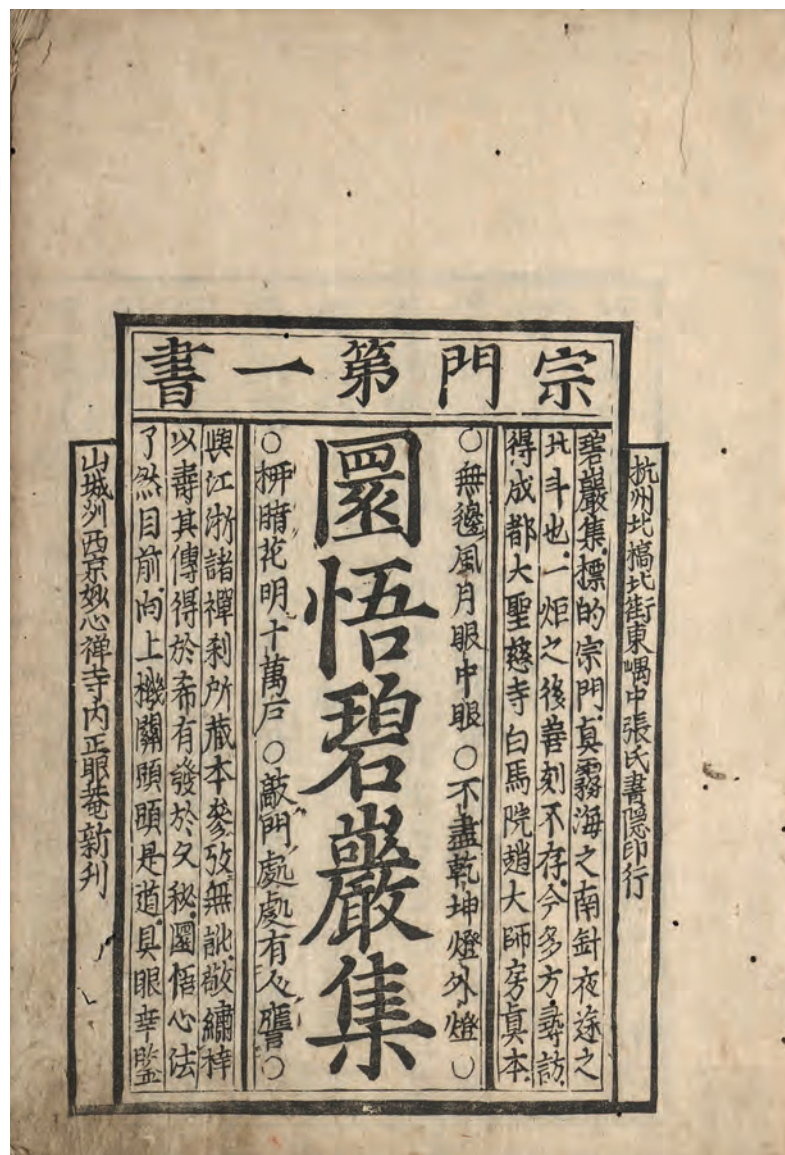 宗門第一書
杭州北橋北街東嵎中張氏書隱印行
碧巖集標的宗門真霧海之南針夜途之
北斗也一炬之後善刻不存今多方尋訪
得成都大聖慈寺白馬院趙大師房眞本
○無邊風月眼中眼○不盡乾坤燈外燈○
圜悟碧巖集
○柳暗花明十萬戶○敲門處處有人譍○
與江浙諸禪刹所藏本參攷無訛敬繡梓
以壽其傳得於希有發於久秘圜悟心法
了然目前向上機關頭頭是道具眼幸鑒
山城洲西京妙心禅寺内正眼菴新刋